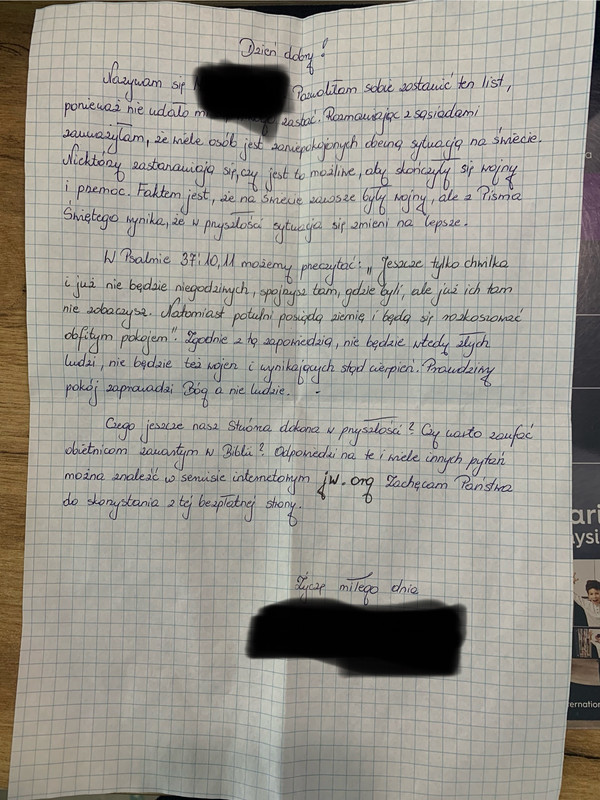 Dzień dobry!
Nazywam się Pozwoliłam sobie zostawić ten list,
ponieważ nie udało zastać. Rozmawiając z sąsiadami
zauważyłam, że wiele osób jest zaniepokojonych obecną sytuacją na świecie.
Niektórzy zastanawiają się, czy jest to możliwe, aby skończyły się wojny
i przemoc. Faktem jest, że na świecie zawsze były wojny, ale z Pisma
Świętego wynika, że w przyszłości sytuacja się zmieni na lepsze.
W Psalmie 37:10,11 możemy przeczytać: „Jeszcze tylko chwilka
i już nie będzie niegodziwych, spojrzysz tam, gdzie byli, ale już ich tam
nie zobaczysz. Natomiast potulni posiądą ziemię i będą się rozkoszować
obfitym pokojem". Zgodnie z tą zapowiedzią, nie będzie wtedy złych
ludzi, nie będzie też wojen i wynikających stąd cierpień. Prawdziwy
pokój zaprowadzi Bóg a nie ludzie.
Czego jeszcze nasz Stwórca dokona w przyszłości? Czy warto zaufać
obietnicom zawartym w Biblii? Odpowiedzi na te i wiele innych pytań
można znaleźć w serwisie internetowym jw.org Zachęcam Państwa
do skorzystania z tej bezpłatnej strony.
Życzę miłego dnia